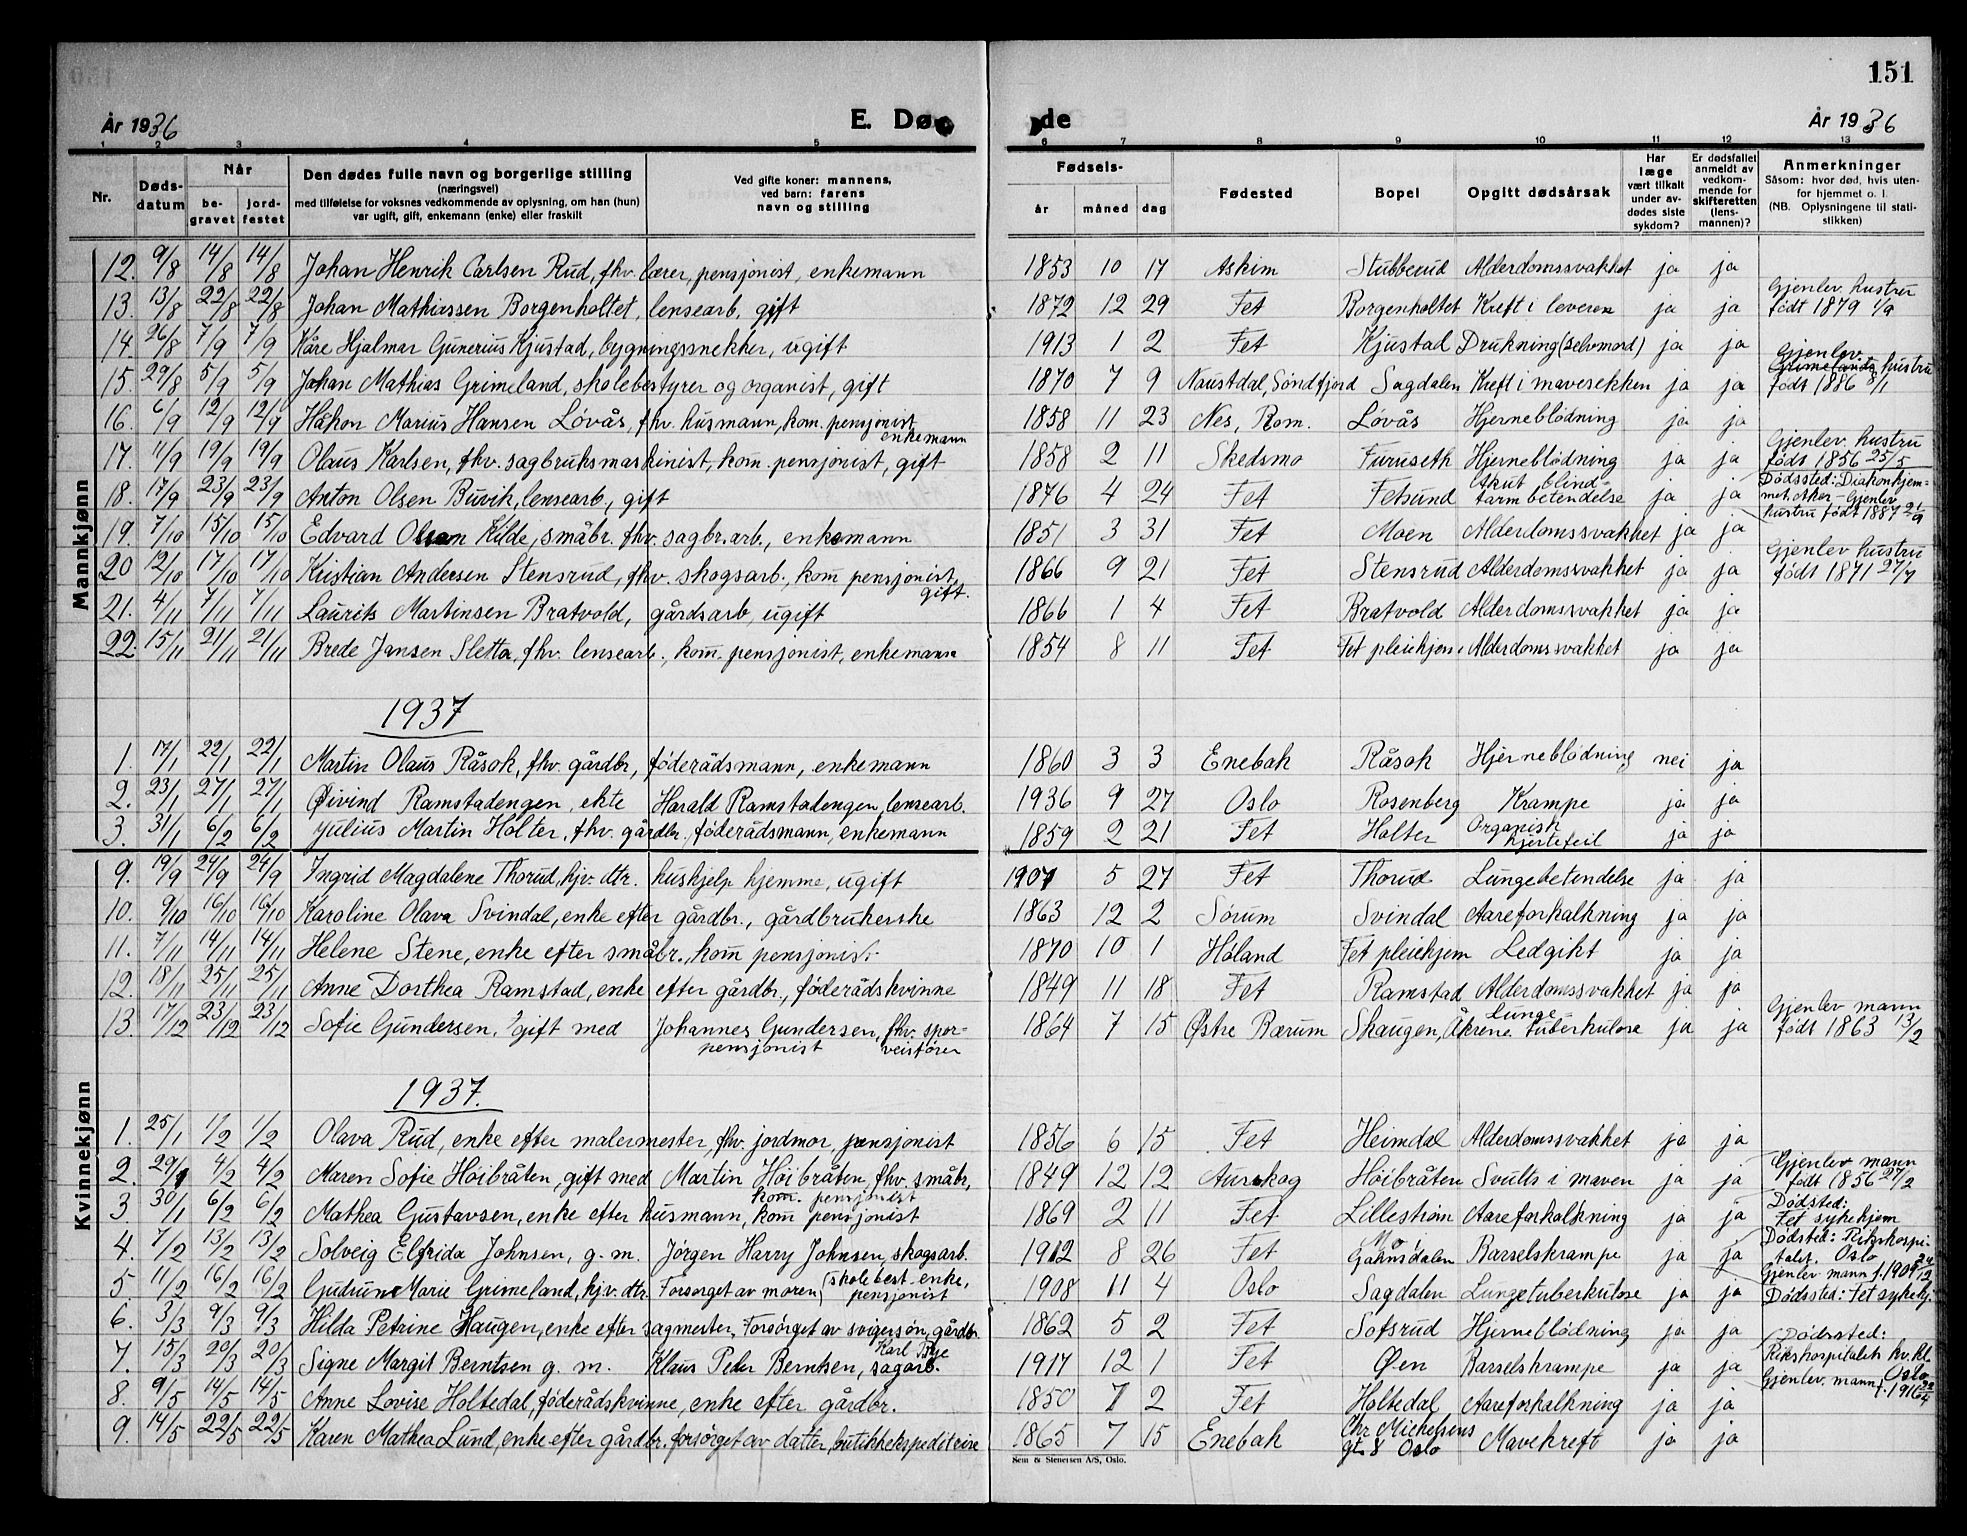 151
År 1936 E. Dø de År 1936
1 2 3 4 5 6 7 8 9 10 11 12 13
Nr. Døds-datum Når be-gravet jord-festet Den dødes fulle navn og borgerlige stilling (næringsvei) med tilføielse for voksnes vedkommende av oplysning, om han (hun) var ugift, gift, enkemann (enke) eller fraskilt Ved gifte koner: mannens, ved barn: farens navn og stilling Fødsels- år måned dag Fødested Bopel Opgitt dødsårsak Har læge vært tilkalt under av-dødes siste sykdom? Er dødsfallet anmeldt av vedkom-mende for skifteretten (lens-mannen)? Anmerkninger Såsom: hvor død, hvis uten-for hjemmet o. l. (NB. Oplysningene til stati-stikken)
Mannkjønn
12. 9/8 14/8 14/8 Johan Henrik Carlsen Rud, fhv. lærer, pensjonist, enkemann 1853 10 17 Askim Stubberud Alderdomssvakhet ja ja
13. 13/8 22/8 22/8 Johan Mathiessen Borgenholtet, lensearb, gift 1872 12 29 Fet Borgenholtet Kreft i leveren ja ja Gjenlev. hustru født 1879 1/9
14. 26/8 7/9 7/9 Kåre Hjalmar Gunerius Kjustad, bygningssnekker, ugift 1913 1 2 Fet Kjustad Drukning (selvmord) ja ja
15. 29/8 5/9 5/9 Johan Mathias Grimeland, skolebestyrer og organist, gift 1870 7 9 Naustdal, Søndfjord Sagdalen Kreft i mavesekken ja ja Gjenlev. hustru født 1886 8/1
16. 6/9 12/9 12/9 Håkon Marius Hansen Løvås, fhv. husmann, kom. pensjonist, enkemann 1858 11 23 Nes, Rom. Løvås Hjerneblødning ja ja
17. 11/9 19/9 19/9 Olaus Karlsen, fhv. sagbruksmaskinist, kom. pensjonist, gift 1858 2 11 Skedsmo Furuseth Hjerneblødning ja ja Gjenlev. hustru født 1856 25/5
18. 17/9 23/9 23/9 Anton Olsen Buvik, lensearb., gift 1876 4 24 Fet Fetsund Akut blind-tarmbetendelse ja ja Dødssted: Diakonhjem-met, Aker - Gjenlev hustru født 1887 21/9
19. 7/10 15/10 15/10 Edvard Olsen Kilde, småbr. fhv. sagbr.arb., enkemann 1851 3 31 Fet Moen Alderdomssvakhet ja ja
20 12/10 17/10 17/10 Kristian Andersen Stensrud, fhv. skogsarb., kom pensjonist, gift. 1866 9 21 Fet Stensrud Alderdomssvakhet ja ja Gjenlev hustru født 1871 27/7
21. 4/11 7/11 7/11 Laurits Martinsen Bratvold, gårdsarb, ugift 1866 1 4 Fet Bratvold Alderdomssvakhet ja ja
22. 15/11 21/11 21/11 Brede Jansen Sletta, fhv. lensearb., kom. pensjonist, enkemann 1854 8 11 Fet Fet pleiehjem Alderdomssvakhet ja ja
1937
1. 17/1 22/1 22/1 Martin Olaus Råsok, fhv. gårdbr, føderådsmann, enkemann 1860 3 3 Enebak Råsok Hjerneblødning nei ja
2. 23/1 27/1 27/1 Øivind Ramstadengen, ekte Harald Ramstadengen, lensearb. 1936 9 27 Oslo Rosenberg Krampe ja ja
3. 31/1 6/2 6/2 Julius Martin Holter, fhv. gårdbr., føderådsmann, enkemann 1859 2 21 Fet Holter Organisk hjertefeil ja ja
Kvinnekjønn
9. 19/9 24/9 24/9 Ingrid Magdalene Thorud, hjv. dtr. hushjelp hjemme, ugift 1907 5 27 Fet Thorud Lungebetendelse ja ja
10. 9/10 16/10 16/10 Karoline Olava Svindal, enke efter gårdbr., gårdbrukerske 1863 12 2 Sørum Svindal Aareforkalkning ja ja
11. 7/11 14/11 14/11 Helene Stene, enke efter småbr., kom pensjonist 1870 10 1 Høland Fet pleiehjem Ledgikt ja ja
12. 18/11 25/11 25/11 Anne Dorthea Ramstad, enke efter gårdbr., føderådskvinne 1849 11 18 Fet Ramstad Alderdomssvakhet ja ja
13. 17/12 23/12 23/12 Sofie Gundersen, gift med Johannes Gundersen, fhv. spor-veisfører pensjonist 1864 7 15 Østre Bærum Skaugen, Åkrene Lunge-tuberkulose ja ja Gjenlev mann født 1863 13/2
1937.
1. 25/1 1/2 1/2 Olava Rud, enke efter malermester, fhv. jordmor, pensjonist 1856 6 15 Fet Heimdal Alderdomssvakhet ja ja
2. 29/1 4/2 4/2 Maren Sofie Høibråten, gift med Martin Høibråten, fhv. småbr, kom. pensjonist 1849 12 12 Aurskog Høibråten Svulst i maven ja ja Gjenlev mann født 1856 27/2
3 30/1 6/2 6/2 Mathea Gustavsen, enke efter husmann, kom pensjonist 1869 2 11 Fet Lillestrøm Aareforkalkning ja ja Dødsted: Fet sykehjem
4. 7/2 13/2 13/2 Solveig Elfrida Johnsen, g. m. Jørgen Harry Johnsen, skogsarb. 1912 8 26 Fet Barselskrampe ja ja Dødsted: Rikshospi-talet, Oslo Gjenlev mann f. 1909
5. 11/2 16/2 16/2 Gudrun Marie Grimeland, hjv. dtr. Forsørget av moren, (skolebest. enke, pensjonist 1908 11 4 Oslo Sagdalen Lungetuberkulose ja ja Dødssted: Fet sykehj.
6. 3/3 9/3 9/3 Hilda Petrine Haugen, enke efter sagmester, Forsørget av svigersøn, gårdbr. Karl Bye 1862 5 2 Fet Sofsrud Hjerneblødning ja ja
7. 15/3 20/3 20/3 Signe Margit Berntsen g. m. Klaus Peder Berntsen, sagarb. 1917 12 1 Fet Øen Barselskrampe ja ja Dødssted: Rikshospitalets kv. kl. Oslo Gjenlev. mann f. 1916
8. 9/5 14/5 14/5 Anne Lovise Holtedal, føderådskvinne, enke efter gårdbr. 1850 7 2 Fet Holtedal Aareforkalkning ja ja
9. 14/5 22/5 22/5 Karen Mathea Lund, enke efter gårdbr. forsørget av datter, butikkekspeditrise 1865 7 15 Enebak Chr Michelsens gt. 8 Oslo Mavekreft ja ja
Sem & Stenersen A/S, Oslo.